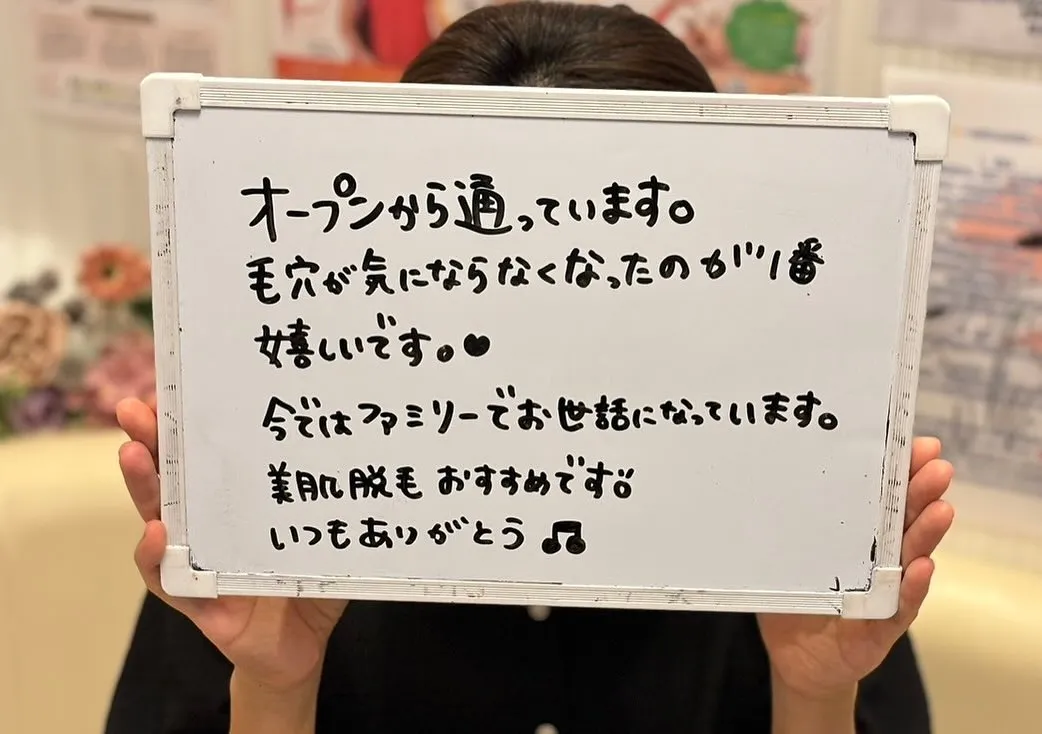 オープンから通っています。
毛穴が気にならなくなったのが1番
嬉しいです。♥
今ではファミリーでお世話になっています。
美肌脱毛 おすすめです!!
いつもありがとう♫